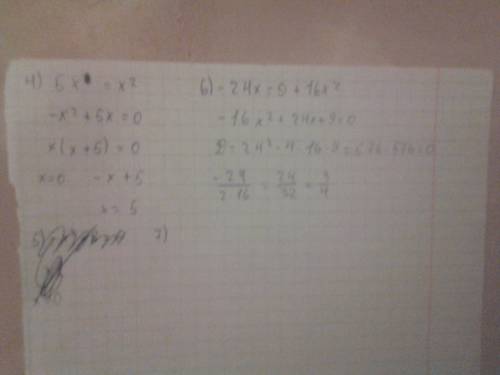 4) 5x = x²
-x² + 5x = 0
x(x+5) = 0
x=0 -x+5
x = 5
5)
6) -24x = 9 + 16x²
-16x² + 24x + 9 = 0
D = 24² - 4 · 16 · 9 = 576 - 576 = 0
-24/2·16 = 24/32 = 3/4
7)